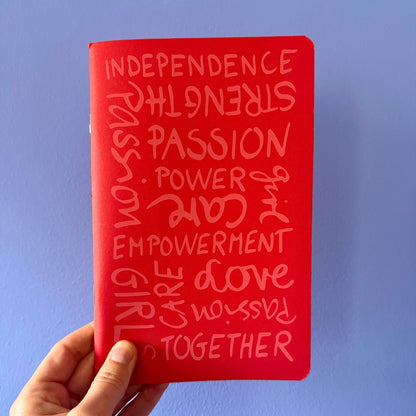 INDEPENDENCE
STRENGTH
Passion
PASSION
POWER
girl
care
EMPOWERMENT
GIRL
CARE
Love
Passion
TOGETHER